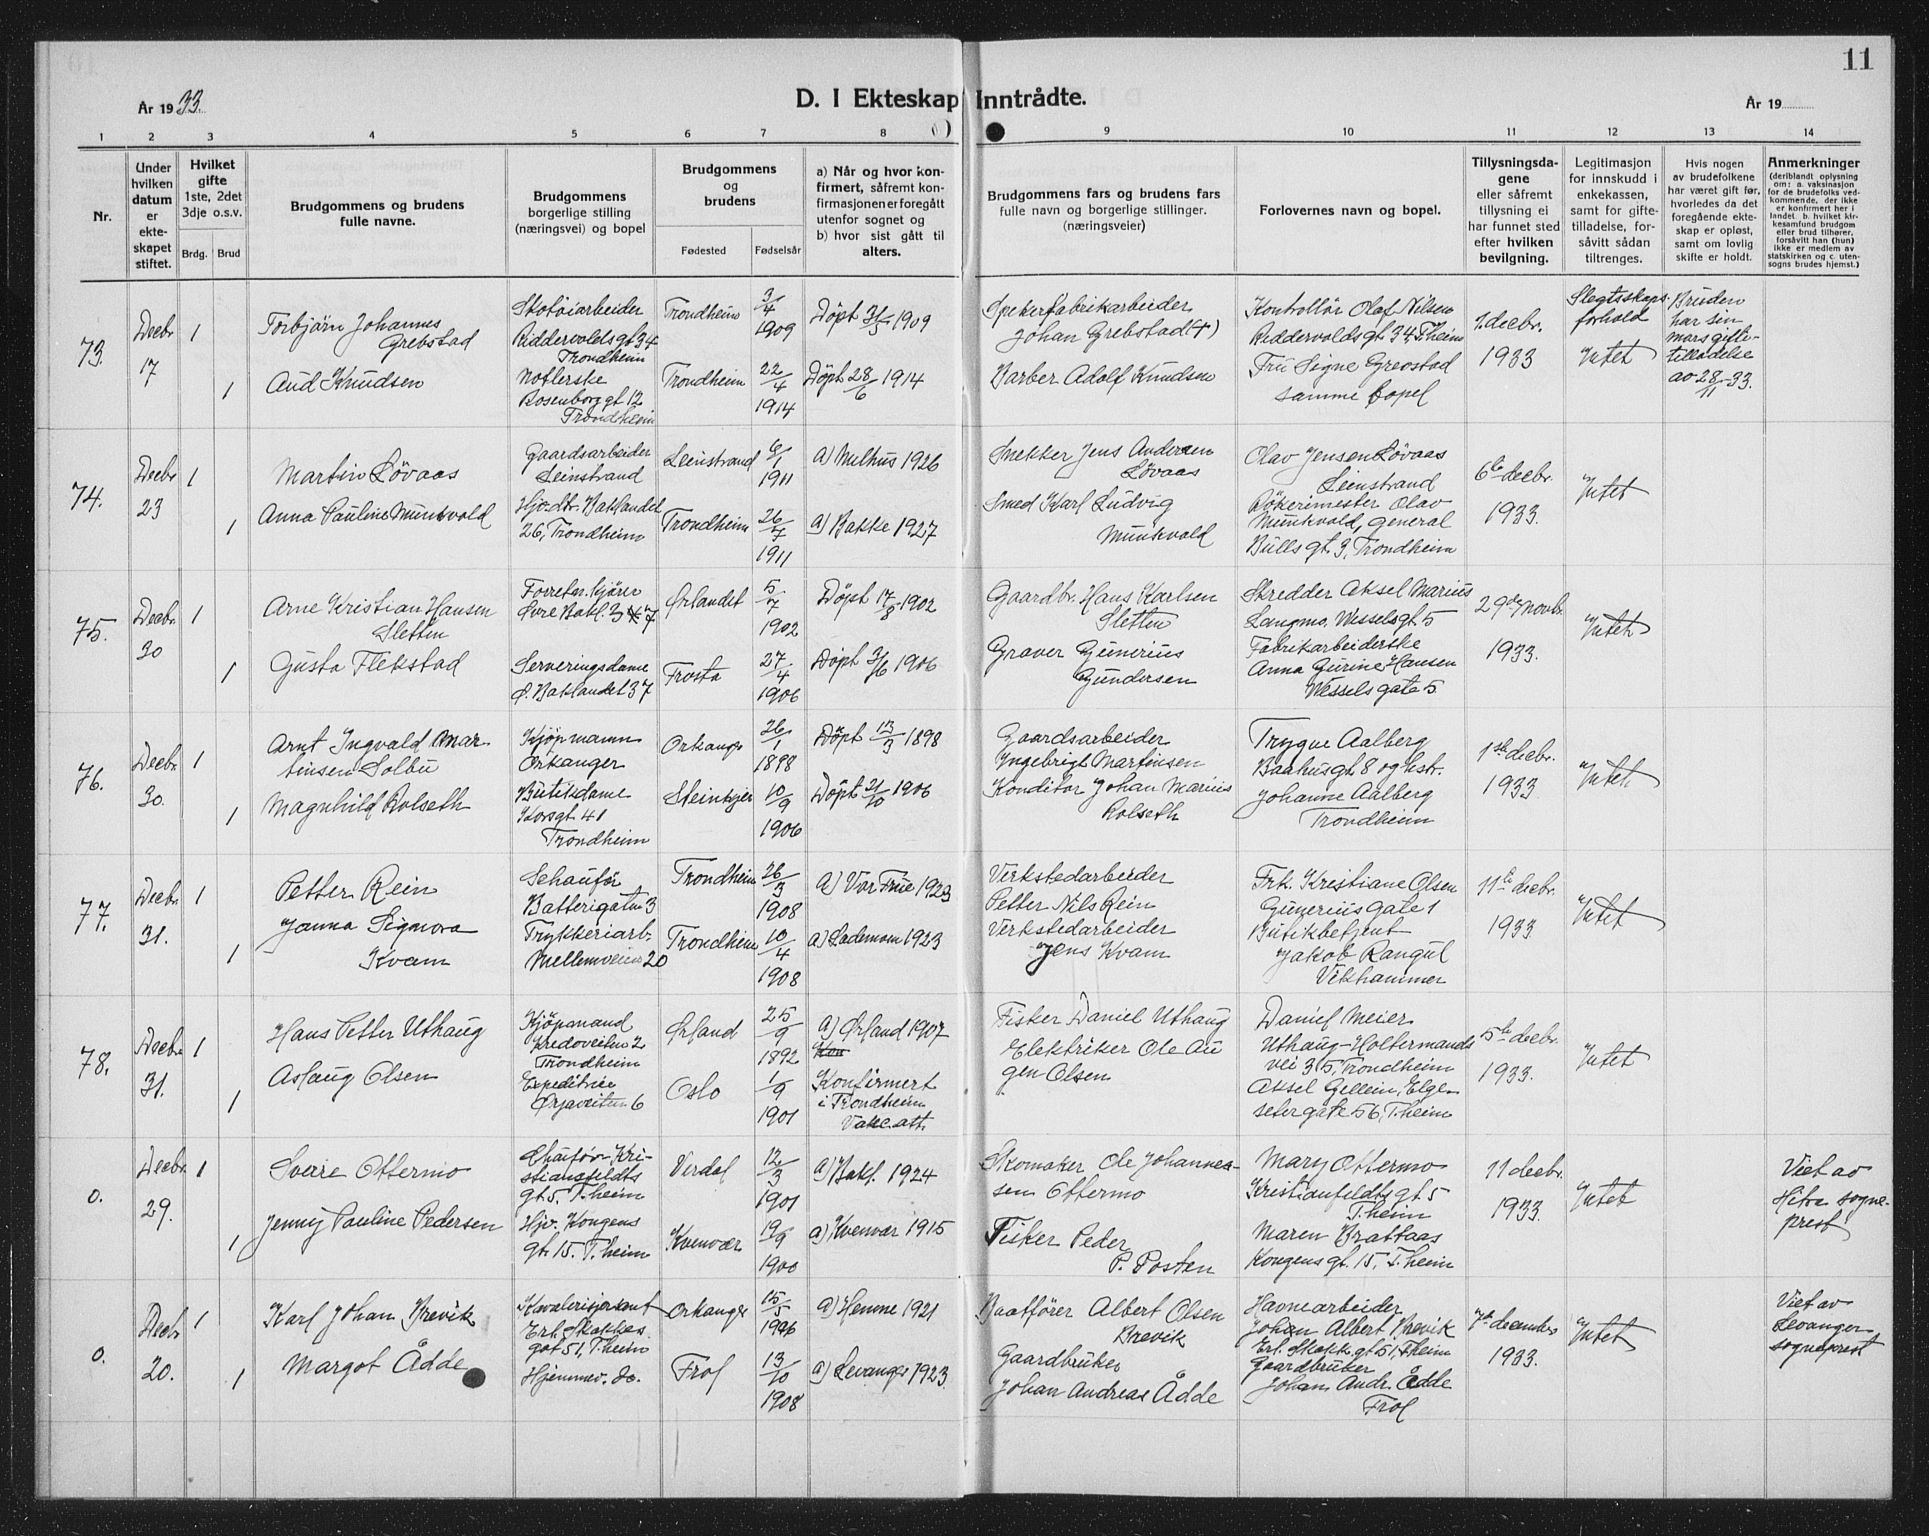 11
År 1933.
D. I Ekteskap Inntrådte.
År 19
1 2 3 4 5 6 7 8 9 10 11 12 13 14
Nr.
Under hvilken datum er ekteskapet stiftet.
Hvilket gifte 1ste, 2det 3dje o.s.v.
Brdg. Brud
Brudgommens og brudens fulle navne.
Brudgommens borgerlige stilling (næringsvei) og bopel
Brudgommens og brudens
Fødested Fødselsår
a) Når og hvor konfirmert, såfremt konfirmasjonen er foregått utenfor sognet og b) hvor sist gått til alters.
Brudgommens fars og brudens fars fulle navn og borgerlige stillinger. (næringsveier)
Forlovernes navn og bopel.
Tillysningsdagene eller såfremt tillysning ei har funnet sted efter hvilken bevilgning.
Legitimasjon for innskudd i enkekassen, samt for giftetilladelse, forsåvitt sådan tiltrenges.
Hvis nogen av brudefolkene har været gift før, hvorledes da det foregående ekteskap er opløst, samt om lovlig skifte er holdt.
Anmerkninger (deriblandt oplysning om: a. vaksinasjon for de brudefolks vedkommende, der ikke er konfirmert her i landet. b. hvilket kirkesamfund brudgom eller brud tilhører, forsåvitt han (hun) ikke er medlem av statskirken og c. utensogns brudes hjemst.)
73. Decbr. 17 1
Torbjørn Johannes Grebstad
Skotøiarbeider
Riddervoldsgt 34
Trondheim
Trondheim 3/4 1909
Døpt 31/5 1909
Spikerfabrikarbeider
Johan Grebstad (+)
Kontrollør Olaf Nilsen
Riddervoldsgt 34, T.heim
1. decbr. 1933
Slegtsskaps forhold
Intet
Bruden har sin
gifte-
tilladelse
av 28/11-33.
1 Aud Knudsen
Rosenborggt 12
Trondheim
Trondheim 22/4 1914
Døpt 28/6 1914
Barber Adolf Knudsen
Fru Signe Grebstad
samme bopel
74. Decbr 23 1
Martin Løvaas
Gaardsarbeider
Leinstrand
Leinstrand 6/1 1911
a) Melhus 1926
Snekker Jens Andersen
Løvaas
Olav Jensen Løvaas
Leinstrand
6te decbr. 1933.
Intet
1 Anna Pauline Munkvold
Baklandet
26, Trondheim
Trondheim 26/7 1911
a) Bakke 1927
Smed Karl Ludvig
Munkvold
Røkerimester Olav
Munkvold, General
Bulls gt. 3, Trondheim
75. Decbr. 30 1
Arne Kristian Hansen
Sletten
Øvre Bakl. 37
Ørlandet 5/7 1902
Døpt 17/8-1902
Gaardbr. Hans Karlsen
Sletten
Skredder Aksel Marius
Langmo, Wesselsgt 5
29de novbr. 1933.
Intet
1 Gusta Flekstad
Serveringsdame
Ø. Baklandet 37
Frosta 27/4 1906
Døpt 3/6 1906
Graver Gunerius
Gundersen
Fabrikarbeiderske
Anna Gurine Hansen
Wessels gate 5
76. Decbr. 30. 1
Arnt Ingvald Mar-
tinsen Solbu
Kjøpmann
Orkanger
Orkanger 26/1 1898
Døpt 13/3 1898
Gaardsarbeider
Ingebrigt Martinsen
Trygve Aalberg
Baahusgt 8 og hstr.
1ste decbr. 1933
Intet
1 Magnhild Rolseth
Butikdame
Korsgt. 41
Trondheim
Steinkjer 10/9 1906
Døpt 21/10 1906
Konditor Johan Marius
Rolseth
Johanne Aalberg
Trondheim
77. Decbr. 31. 1
Petter Rein
Schaufør
Batterigaten 3
Trondheim 26/3 1908
a) Vor Frue 1923
Verkstedarbeider
Petter Nils Rein
Frk. Kristiane Olsen
Gunerius gate 1
11te decbr. 1933
Intet
1 Janna Signora
Kvam
Trykkeriarb.
Mellemveien 20
Trondheim 10/4 1908
a) Lademoen 1923
Verkstedarbeider
Jens Kvam
Butikbetjent
Jakob Rangul
Vikhammer
78. Decbr. 31. 1
Hans Petter Uthaug
Kjøpmand
Kredoveiten 2
Trondheim
Ørland 25/9 1892
a) Ørland 1907
Fisker Daniel Uthaug
Daniel Meier
Uthaug-Holtermands
vei 35, Trondheim
5te decbr. 1933.
Intet
1 Aslaug Olsen
Expeditrice
Ørjaveiten 6
Oslo 1/9 1901
Konfirmert
i Trondheim
Elektriker Ole Au
gen Olsen
Aksel Gellein, Elge-
seter gate 56, T.heim
0. Decbr. 29. 1
Sverre Ottermo
Chaufør, Kri-
stiansfeldts
gt. 5, T.heim
Verdal 12/3 1901
a) Bakl. 1924
Skomaker Ole Johannes-
sen Ottermo
Mary Ottermo
Kristianfeldts gt 5
T.heim
11 decbr. 1933.
Intet
Viet av
Hitra sogne-
prest
1 Jenny Pauline Pedersen
Hjv. Kongens
gt. 15. T.heim
Kvenvær 19/9 1900
a) Kvenvær 1915
Fisker Peder
P. Posten
Maren Brattaas
Kongens gt. 15, T.heim
0. Decbr 20. 1
Karl Johan Brevik
Kavalerisjersant
Erl. Skakkes
gat 51, T.heim
Orkanger 15/5 1906
a) Hemne 1921
Baatfører Albert Olsen
Brevik
Havnearbeider
Johan Albert Brevik
Erl. Skakk. gt 51, T.heim
7de december 1933.
Intet
Viet av
Levanger
sogneprest
1 Margot Ådde
Hjemmev. do.
Frol 13/10 1908
a) Levanger 1923.
Gaardbruker
Johan Andreas Ådde
Gaardbruker
Johan Andr. Ådde
Frol